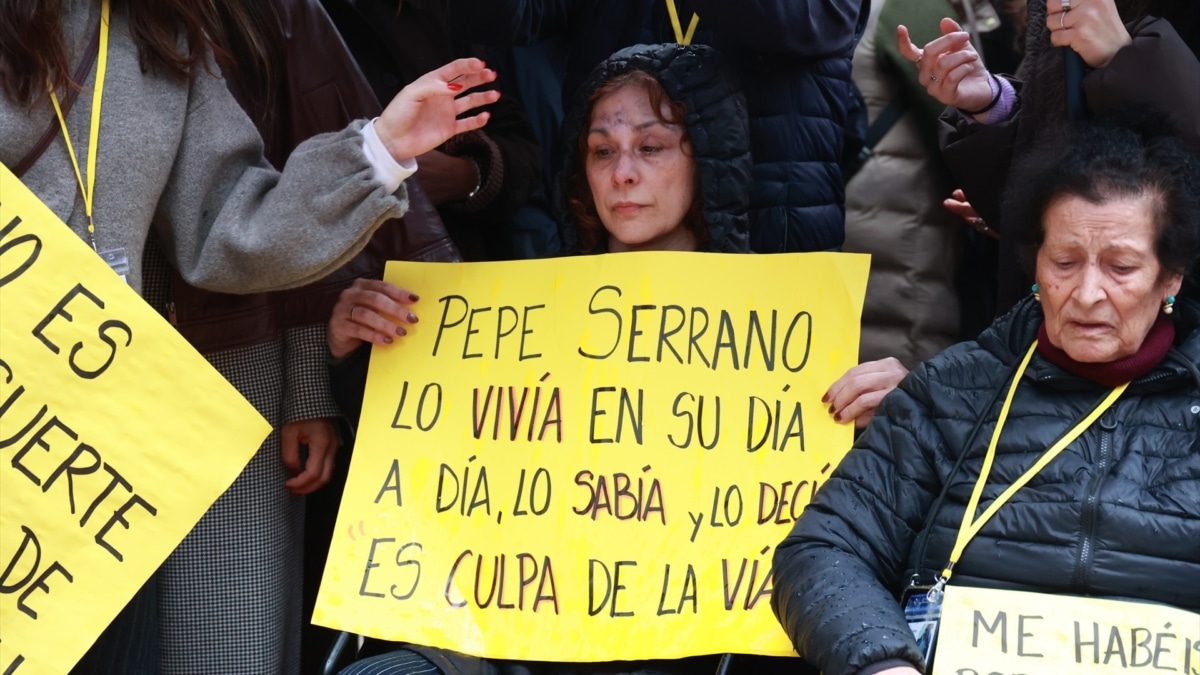 NO ES
SUERTE
DE
PEPE SERRANO
LO VIVÍA EN SU DÍA
A DÍA, LO SABÍA y LO DECÍ
"ES CULPA DE LA VÍA
ME HABÉIS